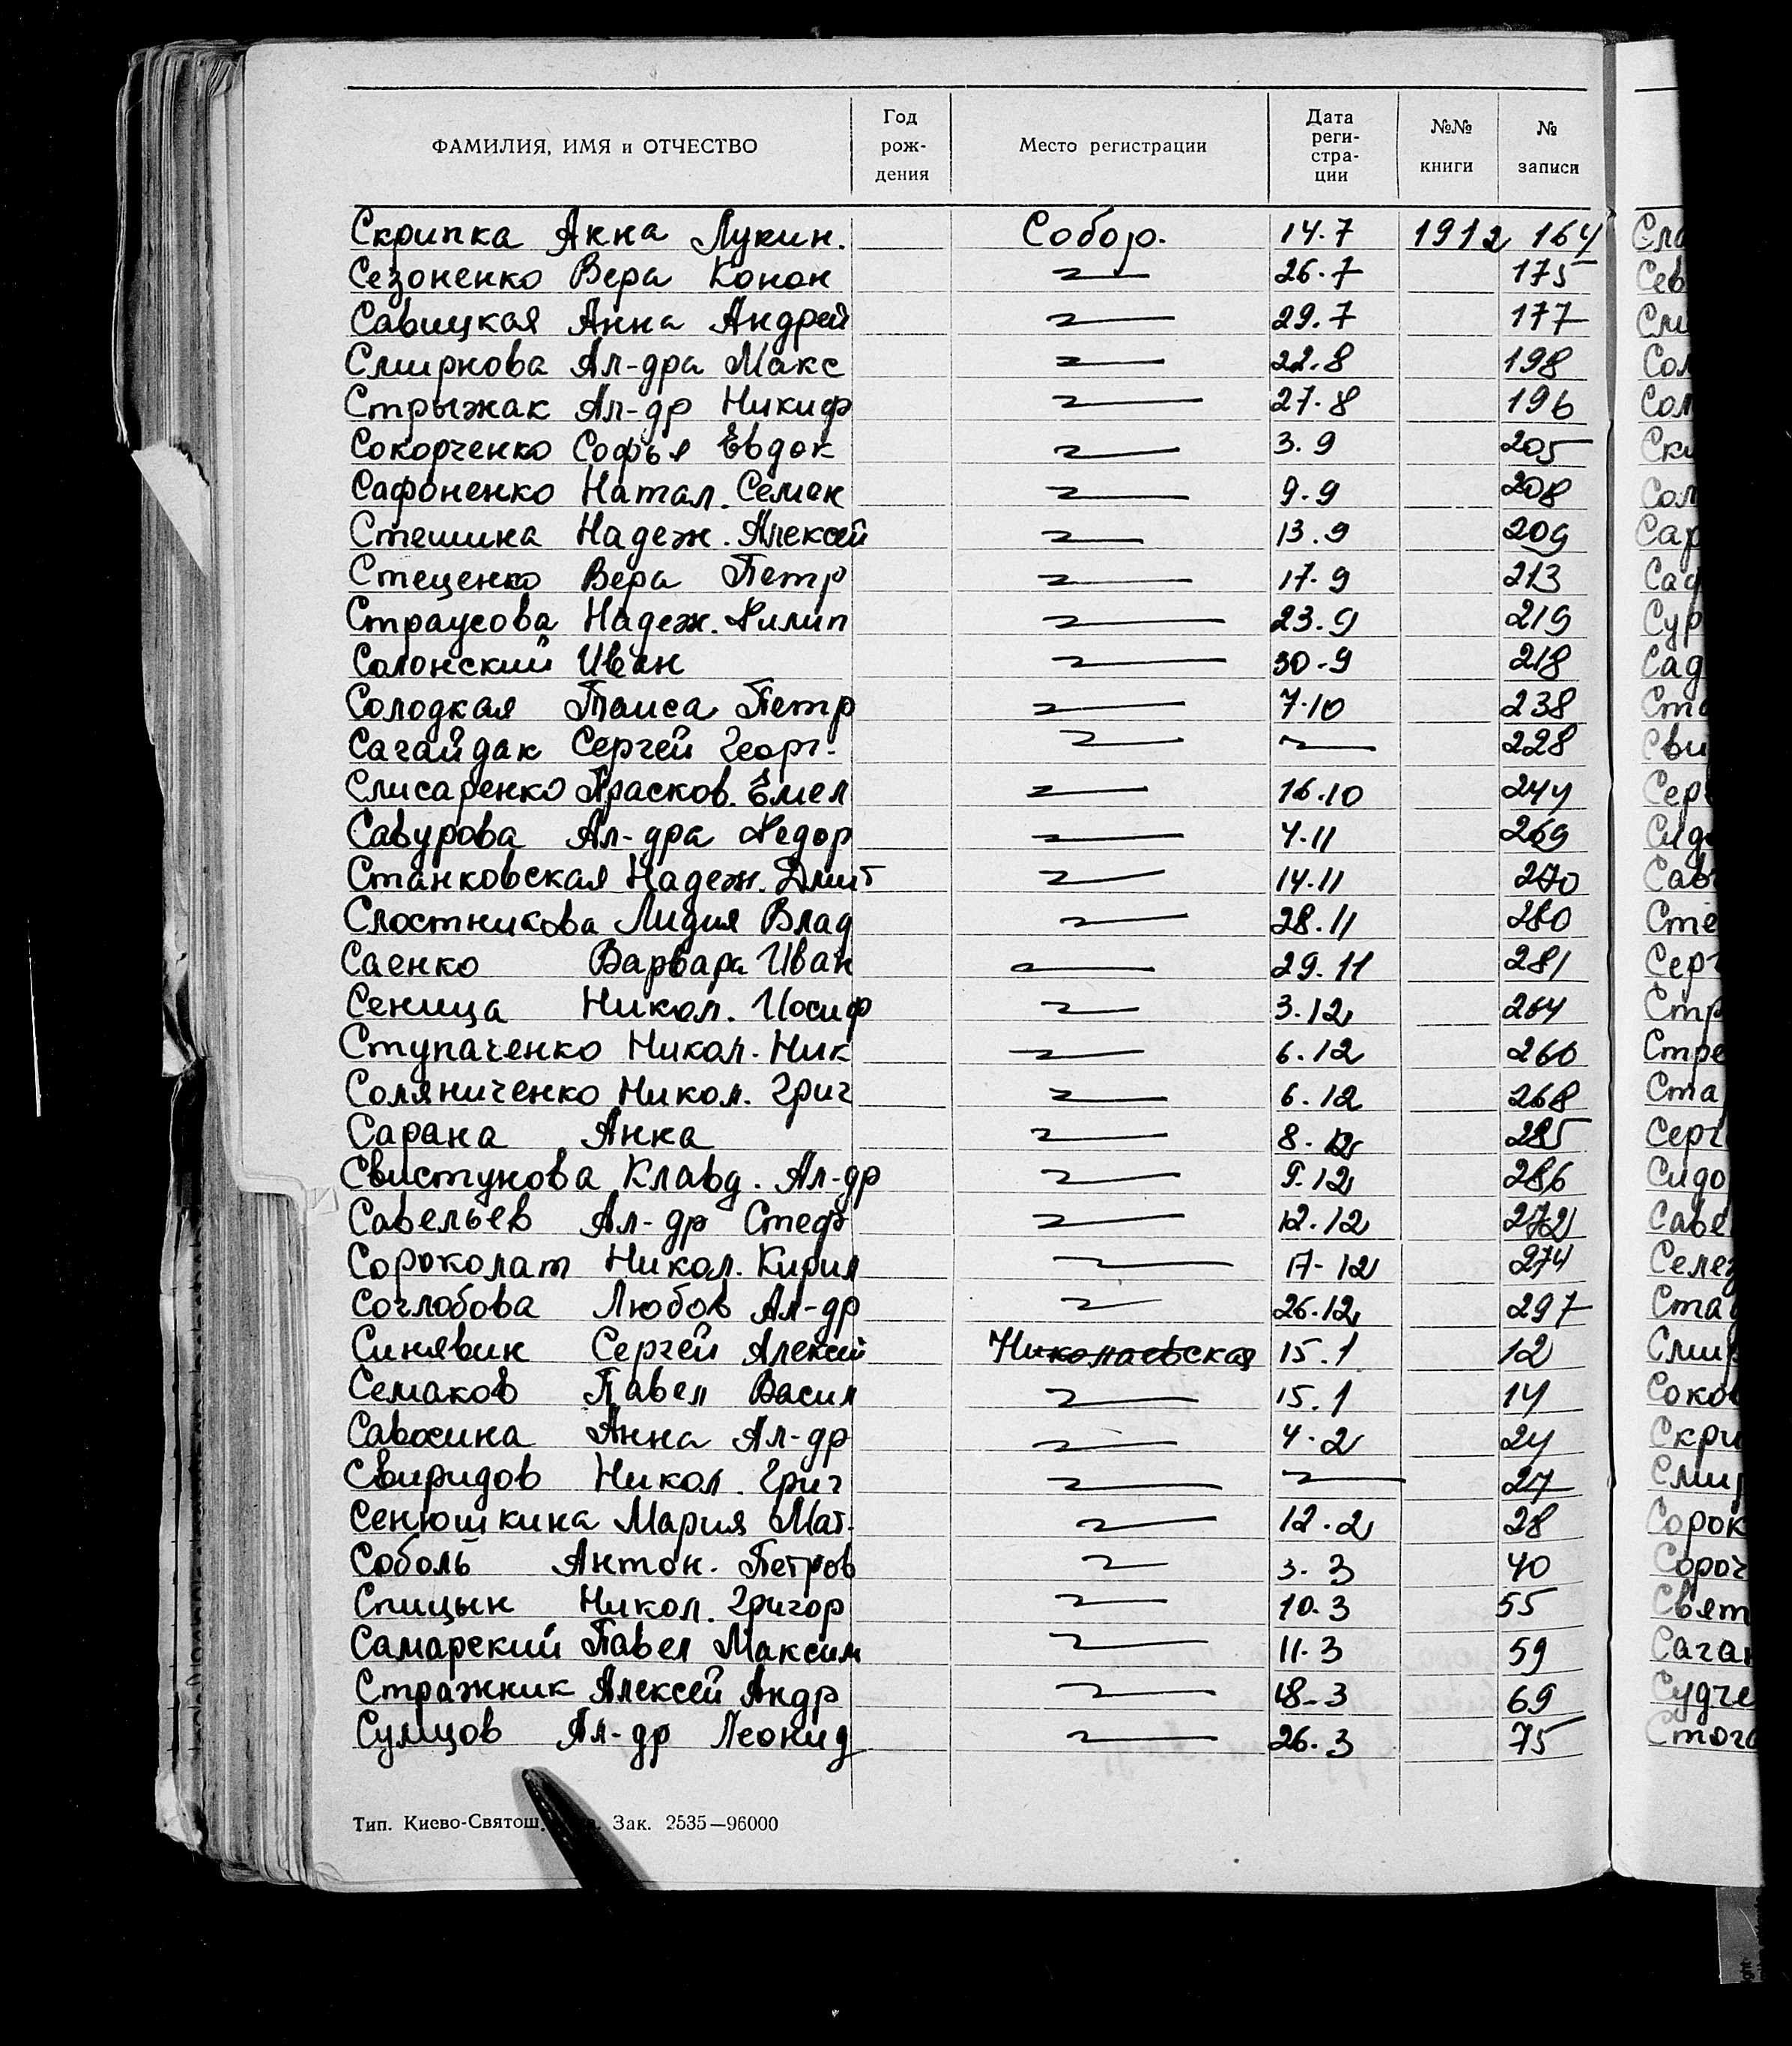 ФАМИЛИЯ, ИМЯ и ОТЧЕСТВО Год рож- дения Место регистрации Дата реги- стра- ции №№ книги № записи
Скрипка Анна Лукин. Собор. 14.7 1912 164
Сезоненко Вера Конон 26.7 175
Савицкая Анна Андрей 29.7 177
Смирнова Ал-дра Макс 22.8 198
Стрыжак Ал-др Никиф 27.8 196
Сокорченко Софья Евдок 3.9 205
Сафоненко Натал. Семен 9.9 208
Стешина Надеж. Алексей 13.9 209
Стеценко Вера Петр 17.9 213
Страусова Надеж. Филип 23.9 219
Солонский Иван 30.9 218
Солодкая Таиса Петр 7.10 238
Сагайдак Сергей Георг. 228
Слисаренко Прасков. Емел 16.10 244
Савурова Ал-дра Федор 4.11 269
Станковская Надеж. Дмит 14.11 270
Слостникова Лидия Влад 28.11 280
Саенко Варвара Иван 29.11 281
Сеница Никол. Иосиф 3.12 264
Ступаченко Никол. Ник 6.12 260
Соляниченко Никол. Григ 6.12 268
Сарана Анна 8.12 285
Свистунова Клавд. Ал-др 9.12 286
Савельев Ал-др Стеф 12.12 272
Сороколат Никол. Кирил 17-12 274
Соглобова Любов Ал-др 26.12 297
Синявин Сергей Алексей Николаевская 15.1 12
Семаков Павел Васил 15.1 14
Савохина Анна Ал-др 4.2 24
Свиридов Никол. Григ 27
Сенюшкина Мария Мат. 12.2 28
Соболь Антон. Петров 3.3 40
Спицын Никол. Григор 10.3 55
Самарский Павел Максим 11.3 59
Стражник Алексей Андр 18-3 69
Сумцов Ал-др Леонид 26.3 75
Тип. Киево-Святош. Зак. 2535—96000